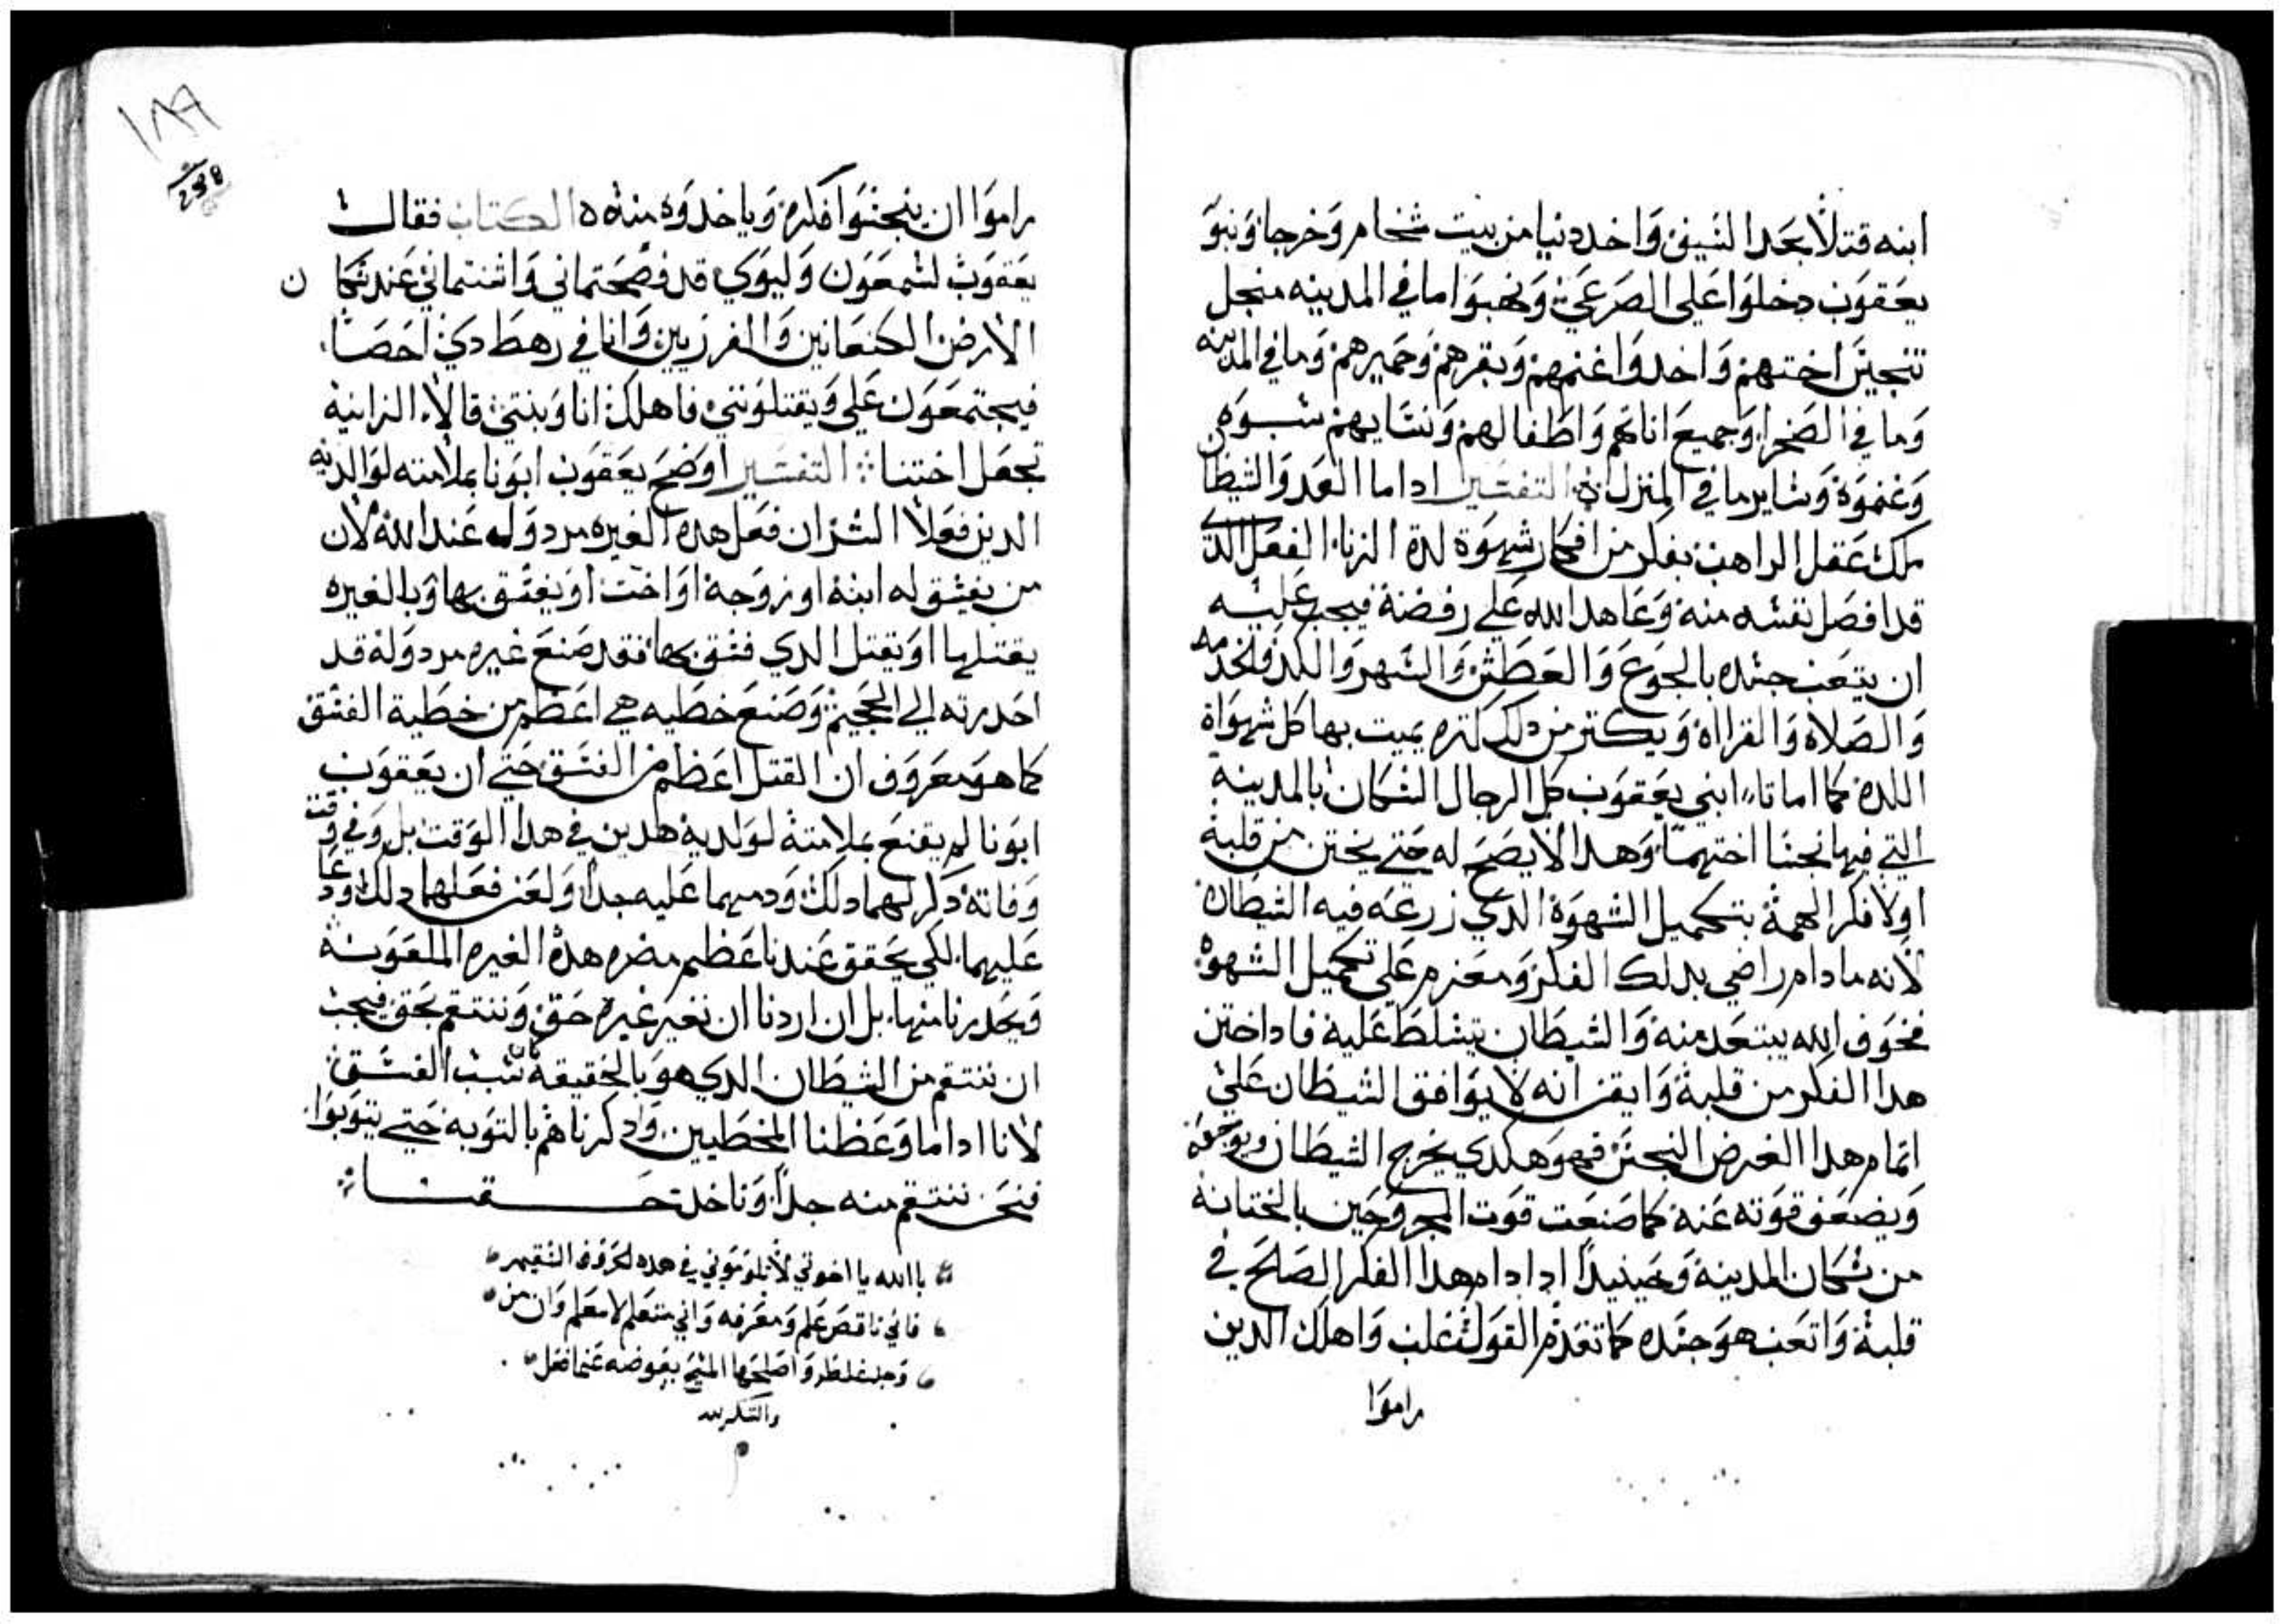 ابنه قتلا بحد السيف واخد دنيا من بيت شخام وخرجا وبنو
يعقوب دخلوا علي الصرعي ونهبوا ما في المدينه منجل
تنجيس اختهم واخدوا غنمهم وبقرهم وحميرهم وما في المدينه
وما في الصحرا وجميع اناتهم واطفالهم ونسايهم سبوه
وغنموة وساير ما في المنزل التفسير اداما العدو الشيطان
ملك عقل الراهب بفكر من افكار شهوة لدة الزنا الفعل الدي
قد افصل نفسه منه وعاهد الله علي رفضة فيجب عليه
ان يتعب جسده بالجوع والعطش والسهر والكد والخدمه
والصلاه والقرااة ويكتر من دلك كتره يميت بها كل شهواة
اللدة كما اماتا ابني يعقوب كل الرجال السكان بالمدينة
التي فيها نجسا اختهما وهدا لا يصح له حتي يختن من قلبة
اولا فكر الهمة بتكميل الشهوة الدي زرعه فيه الشيطان
لانه ما دام راضي بدلك الفكر ومعزم علي تكميل الشهوة
فخوف الله يبتعد منه والشيطان يتسلط علية فاداختن
هدا الفكر من قلبة وايقن انه لا يوافق الشيطان علي
اتمام هدا الغرض النجس فهو هكدي يخرج الشيطان ويوجعة
ويضعف قوته عنه كما صنعت قوت المجروحين بالختانه
من سكان المدينة وحينيدا ادا دام هدا الفكر الصلح في
قلبة واتعب هو جسده كما تقدم القول فغلب واهلك الدين
راموا
١٨٩
راموا ان ينجسوا فكره وياخدوه منه الكتاب فقال
يعقوب لشمعون وليوي قد فضحتماني واشنتماني عند سكان
الارض الكنعانين والفرزيين وانا في رهط دي احصا
فيجتمعون علي ويقتلونني فاهلك انا وبنتي قالا الزانية
تجعل اختنا التفسير اوضح يعقوب ابونا بملامته لوالديه
الدين فعلا الشر ان فعل هده الغيره مردوله عند الله لان
من يفسق له ابنة او زوجة او اخت او يفسق بها وبالغيره
يقتلها او يقتل الدي فسق بها فقد صنع غيره مردولة قد
احدرته الي الجحيم وصنع خطيه هي اعظم من خطية الفسق
كما هو معروف ان القتل اعظم من الفسق حتي ان يعقوب
ابونا لم يقنع بملامتة لولدية هدين في هدا الوقت بل وفي وقت
وفاتة دكر لهما دلك ودمهما عليه جدا ولعن فعلهما دلك ودعا
عليهما لكي يحقق عندنا عظيم مضره هدة الغيره الملعونة
ويحدرنا منها بل ان اردنا ان نغير غيره حق وننتقم بحق فيجب
ان ننتقم من الشيطان الدي هو بالحقيقة سبب الفسق
لانا اداما وعظنا المخطيين ودكرناهم بالتوبه حتي يتوبوا
فنحن ننتقم منه جدا وناخد حقنا
باالله يا اخوتي لا تلوموني في هده لحروف السقيمه
فاني ناقص علم ومعرفه واني متعلم لا معلم وان من
وجد غلط واصلحها المسيح يعوضه عنما فعل
والشكر لله